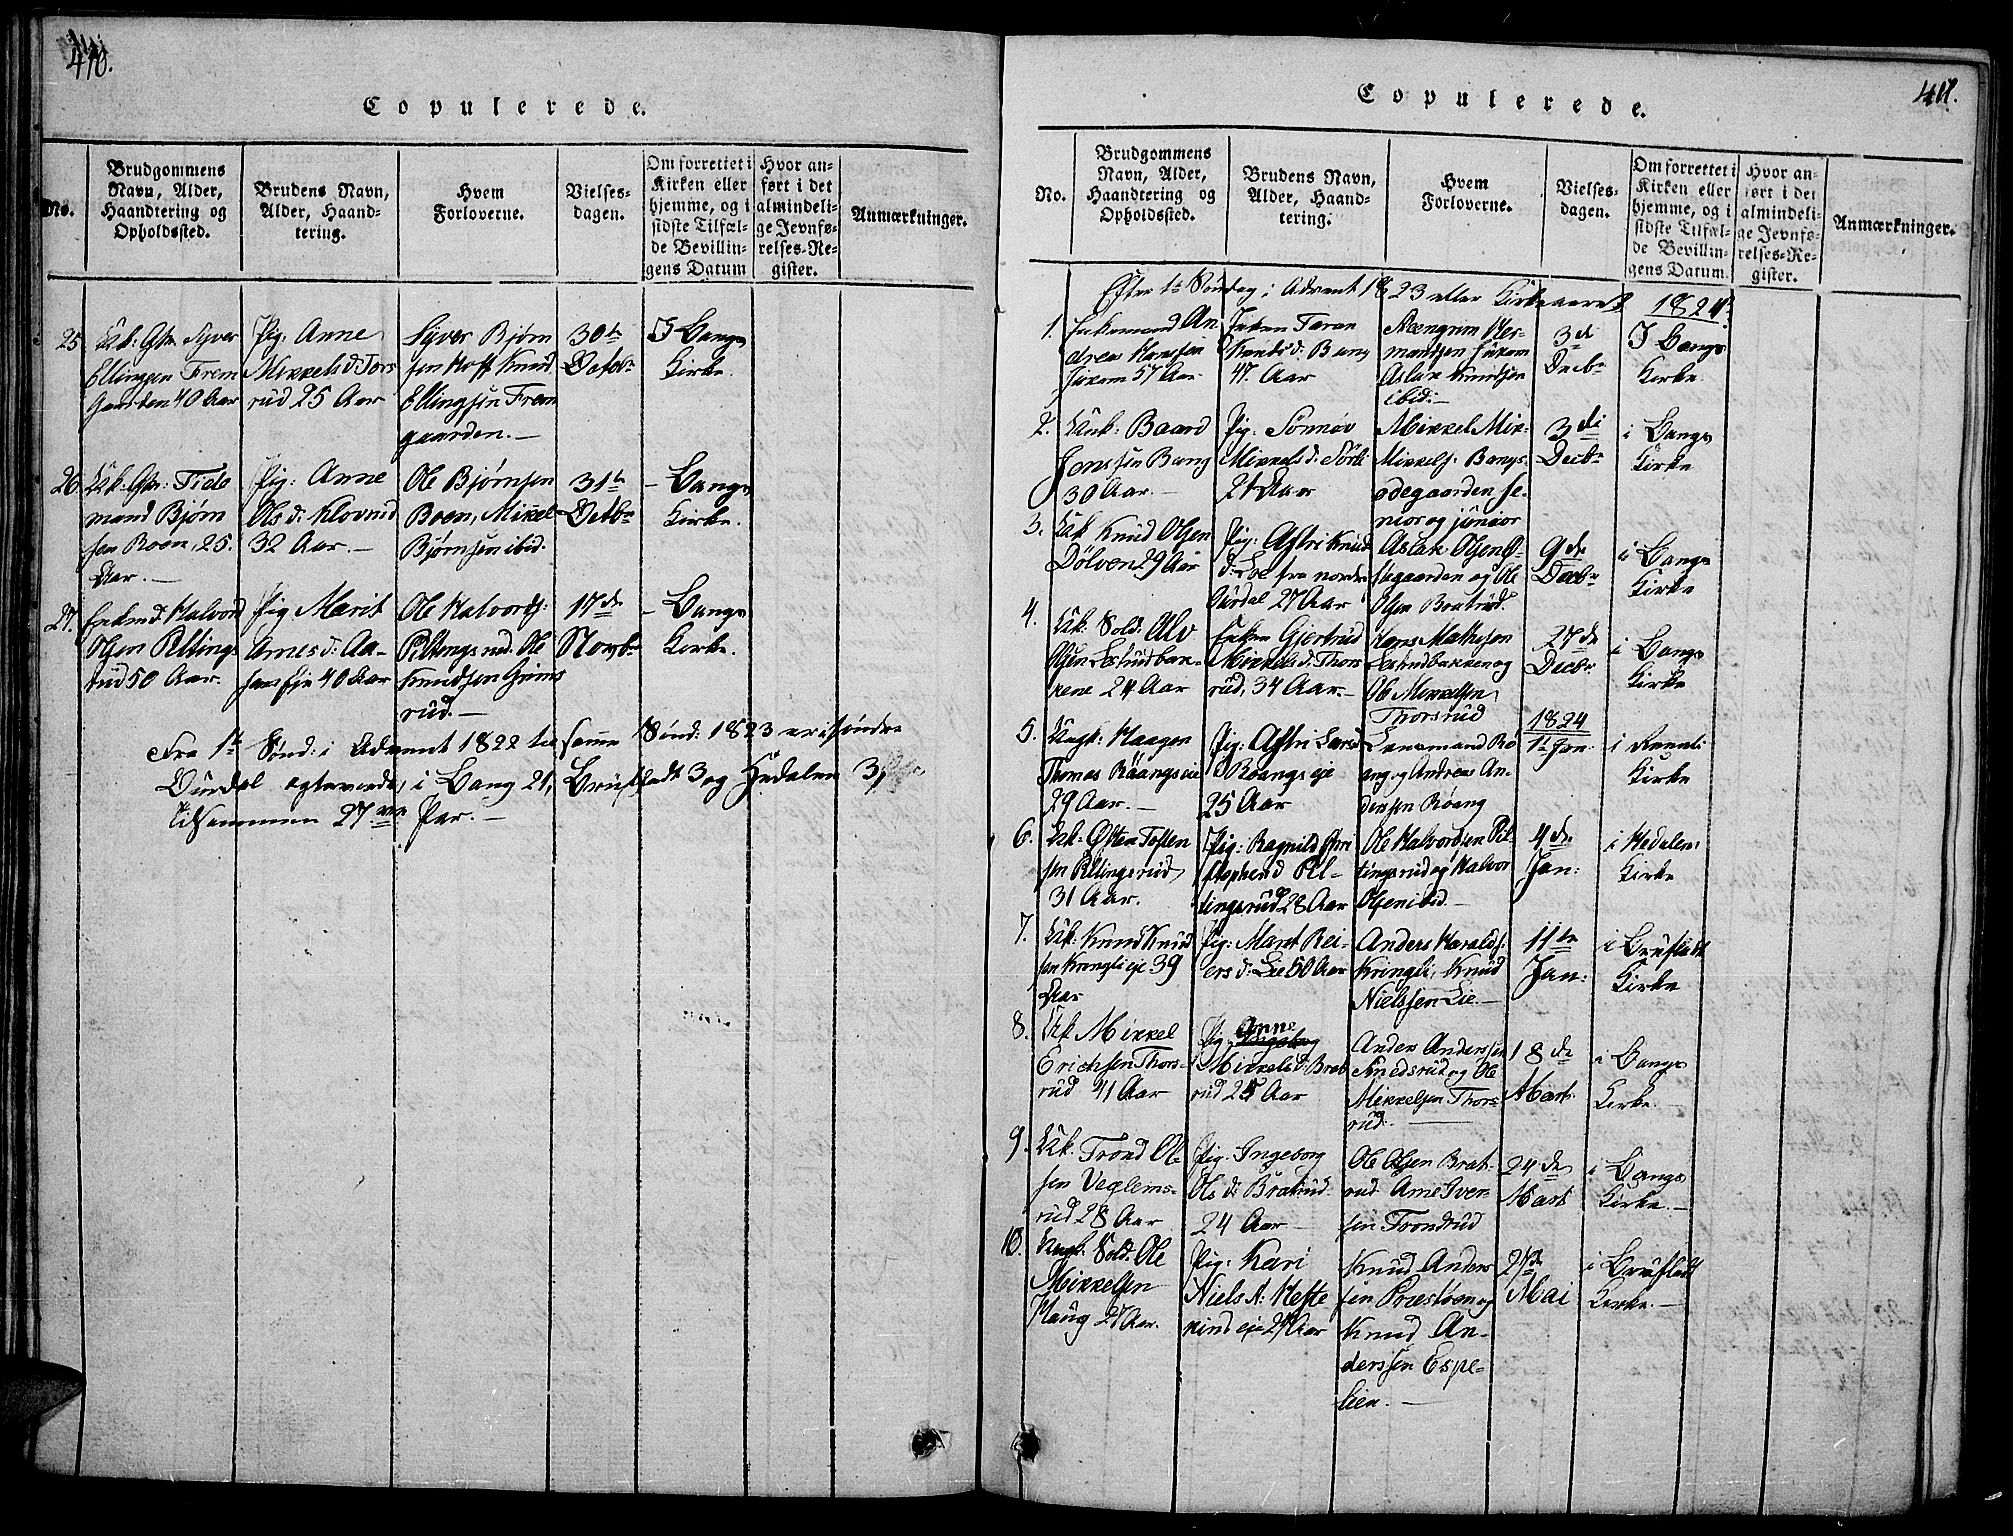 410.
Copulerede.
No.
Brudgommens
Navn, Alder,
Haandtering og
Opholdssted.
Brudens Navn,
Alder, Haand-
tering.
Hvem
Forloverne.
Vielses-
dagen.
Om forrettet i
Kirken eller
hjemme, og i
sidste Tilfæl-
de Bevillin-
gens Datum
Hvor an-
ført i det
almindeli-
ge Jevnfø-
relses-Re-
gister.
Anmærkninger.
25
Ellingsen Frem
Gaarden 40 Aar
Pig: Anne
Mikkels d: Tors
rud 25 Aar
Syver Bjørn
sen Hoff Knud
Ellingsen Frem
gaarden.
30te
Octobr
I Bangs
Kirke.
26
mand Bjørn
sen Boen, 25.
Aar.
Pig: Anne
Ols d: Klovrud
32 Aar.
Ole Bjørnsen
Boen, Mikel
Bjørnsen ibid.
31te
Octbr
Bangs
Kirke.
27.
Enkemd Halvord
Olsen Peltings
rud 50 Aar.
Pig Marit
Arnes d: Aa-
40 Aar
Ole Halvords:
Peltengsrud. Ole
Knudsen Grims
rud.
17de
Novbr
Bangs
Kirke.
Fra 1te Sønd: i Advent 1822 til samme Sønd: 1823 er i søndre
Ourdal egteviede, i Bang 21, Brufladt 3 og Hedalen 3,
tilsammen 27 Par.
411.
Copulerede.
No.
Brudgommens
Navn, Alder,
Haandtering og
Opholdssted.
Brudens Navn,
Alder, Haand-
tering.
Hvem
Forloverne.
Vielses-
dagen.
Om forrettet i
Kirken eller
hjemme, og i
sidste Tilfæl-
de Bevillin-
gens Datum.
Hvor an-
ført i det
almindeli-
ge Jevnfø-
relses-Re-
gister.
Anmærkninger.
Efter 1te Søndag i Advent 1823 eller Kirkeaaret 1824.
1.
Enkemand An
dreas Hansen
57 Aar
Enken Taran
Knuds d: Bang
47. Aar
Steengrim Her-
mandsen
Aslak Knudsen
ibid:
3de
Decbr
I Bangs
Kirke
2.
Ungk: Baard
Jonssen Bang
30 Aar.
Pig: Sønnøv
Mikkels d:
Aar
Mikkel Mik-
Mikkels: Bangs
ødegaarden se-
nior og junior
3di
Decbr
i Bangs
Kirke
3.
Knud Olsen
Dölven 29 Aar
Pig: Astri Knud
d: Loe fra nordre
Ourdal 27 Aar
Aslak Olsen
og Ole
Olsen Bratrud.
9de
Decbr
i Bangs
Kirke
4.
Sold: Olv
Olsen
rene 24 Aar
Enken Gjertrud
Mikkels d: Thors
rud, 34 Aar.
Hans Mathisen
og
Ole Mikkelsen
Thorsrud
27de
Decbr
i Bangs
Kirke
5.
Ungk: Haagen
Thomas Röangs eie
29 Aar.
Pig: Astri Lars d
Röangs eje
25 Aar
Lensmand Rö
ang og Andreas An
dersen Röang
1824
1te Jan.
i
Kirke
6.
Østen Tosten
sen Peltingsrud
31 Aar.
Pig: Ragnild Chri
stophers d Pel-
tingsrud 28 Aar
Ole Halvordsen Pel
tingsrud og Halvor
Olsen ibid.
4de
Jan:
i Hedalens
Kirke
7.
Knud Knud
sen Kringli eje 39
Aar
Pig: Marit Rei-
ers d: Lie 50 Aar
Anders Haralds:
Kringli, Knud
Nielssen Lie.
11te
Jan:
i Brufladt
Kirke
8.
Mikkel
Erichsen Thors-
rud 41 Aar
Pig: Anne
Mikkels d: Brat
rud 25 Aar
Anders Andersen
Smedsrud og Ole
Mikkelsen Thors-
rud.
18de
Mart.
i Bangs
Kirke.
9.
Trond Ol
sen Veglems-
rud 28 Aar
Pig: Ingeborg
Ols d: Bratrud
24 Aar
Ole Olsen Brat-
rud Arne Iver
sen Trondrud
24de
Mart
i Bangs
Kirke.
10.
Ungk. Sold: Ole
Mikkelsen
Haug 27 Aar.
Pig: Kari
Niels d: Hefte
kind eje 27 Aar
Knud Anders
sen Præstøen og
Knud An-
derssen Espe-
lien.
Mai
i Brufladt
Kirke.